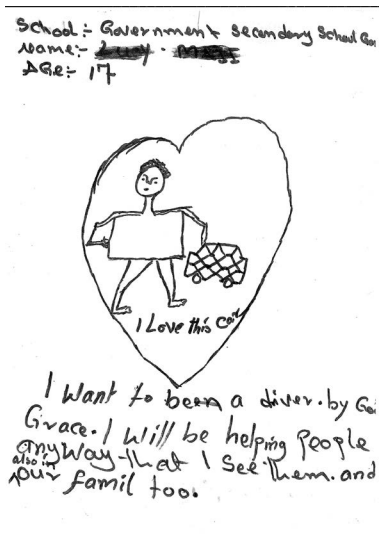 School:- Government Secondary School
Name:-
AGe:- 17
I Love this Car
I Want to been a diver. by
Grace. I will be helping People
any way that I See Them. and
also in our famil too.